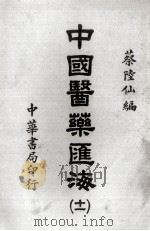 蔡陸仙編
中國醫藥匯海
(十一)
中華書局印行
www.sslibrary.com